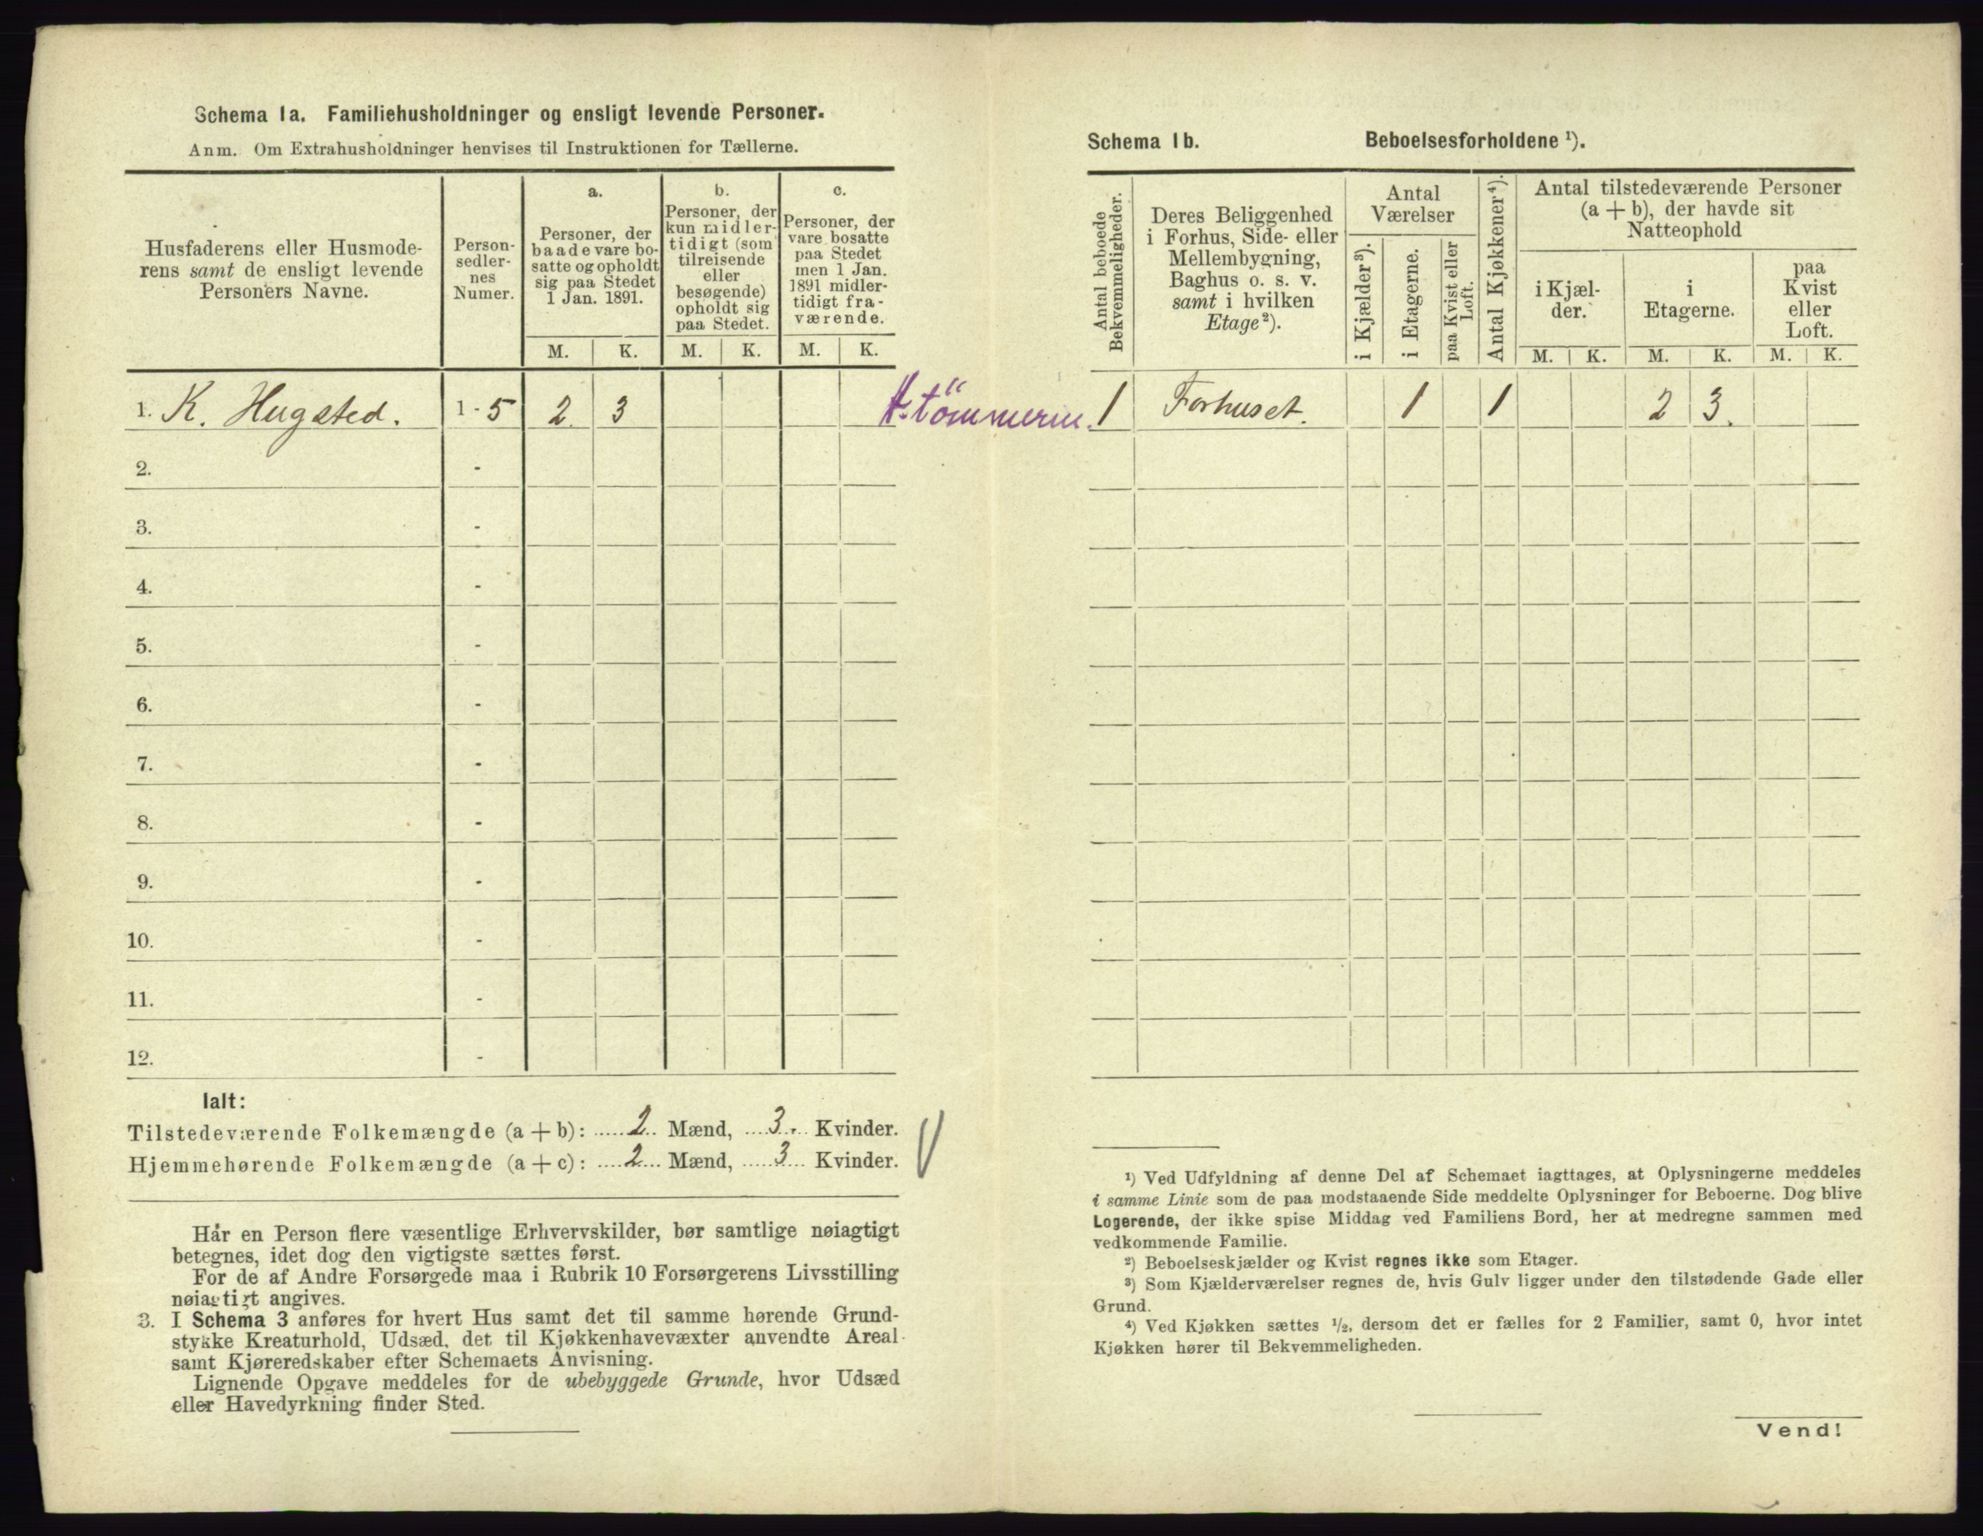 Schema 1a. Familiehusholdninger og ensligt levende Personer.
Anm. Om Extrahusholdninger henvises til Instruktionen for Tællerne.
Husfaderens eller Husmode-
rens samt de ensligt levende
Personers Navne.
Person-
sedler-
nes
Numer.
a.
Personer, der
baade vare bo-
satte og opholdt
sig paa Stedet
1 Jan. 1891.
b.
Personer, der
kun midler-
tidigt (som
tilreisende
eller
besøgende)
opholdt sig
paa Stedet.
c.
Personer, der
vare bosatte
paa Stedet
men 1 Jan.
1891 midler-
tidigt fra-
værende.
M. K. M. K. M. K.
1. K. Hugsted. 1 - 5 2 3
2. -
3. -
4. -
5. -
6. -
7. -
8. -
9. -
10. -
11. -
12. -
Ialt:
Tilstedeværende Folkemængde (a + b): 2 Mænd, 3 Kvinder.
Hjemmehørende Folkemængde (a + c): 2 Mænd, 3 Kvinder.
Har en Person flere væsentlige Erhvervskilder, bør samtlige nøiagtigt
betegnes, idet dog den vigtigste sættes først.
For de af Andre Forsørgede maa i Rubrik 10 Forsørgerens Livsstilling
nøiagtigt angives.
3. I Schema 3 anføres for hvert Hus samt det til samme hørende Grund-
stykke Kreaturhold, Udsæd, det til Kjøkkenhavevæxter anvendte Areal
samt Kjøreredskaber efter Schemaets Anvisning.
Lignende Opgave meddeles for de ubebyggede Grunde, hvor Udsæd
eller Havedyrkning finder Sted.
Schema 1b. Beboelsesforholdene ¹).
Antal beboede
Bekvemmeligheder.
Deres Beliggenhed
i Forhus, Side- eller
Mellembygning,
Baghus o. s. v.
samt i hvilken
Etage²).
Antal
Værelser
i Kjælder³).
i Etagerne.
paa Kvist eller
Loft.
Antal Kjøkkener⁴).
Antal tilstedeværende Personer
(a + b), der havde sit
Natteophold
i Kjæl-
der.
i
Etagerne.
paa
Kvist
eller
Loft.
M. K. M. K. M. K.
1 Forhuset. 1 1 2 3.
¹) Ved Udfyldning af denne Del af Schemaet iagttages, at Oplysningerne meddeles
i samme Linie som de paa modstaaende Side meddelte Oplysninger for Beboerne. Dog blive
Logerende, der ikke spise Middag ved Familiens Bord, her at medregne sammen med
vedkommende Familie.
²) Beboelseskjælder og Kvist regnes ikke som Etager.
³) Som Kjælderværelser regnes de, hvis Gulv ligger under den tilstødende Gade eller
Grund.
⁴) Ved Kjøkken sættes ½, dersom det er fælles for 2 Familier, samt 0, hvor intet
Kjøkken hører til Bekvemmeligheden.
Vend!